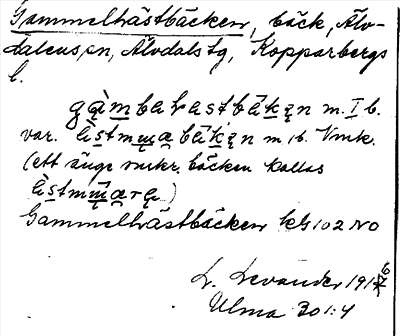 Gammelhästbäcken, bäck, Älv-
dalens sn, Älvdals tg, Kopparbergs
l.
gàmbal-astbäkȩn m. I b.
var. èstmųąbäkȩn m, b. Vmk.
(ett änge vmkr. bäcken kallas
èstmųąrȩ)
Gammelhästbäcken kbl 102 NO
L. Levander 1916
Ulma 301:4